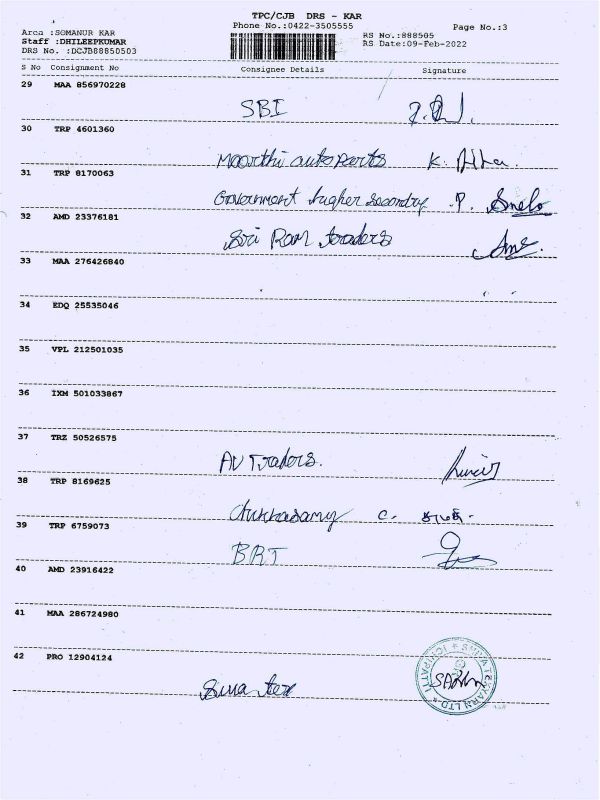 TPC/CJB DRS - KAR
Phone No.:0422-3505555
Page No.:3
Area :SOMANUR KAR
Staff :DHILEEPKUMAR
DRS No. :DCJB88850503
RS No.:888505
RS Date:09-Feb-2022
S No Consignment No Consignee Details Signature
29 MAA 856970228
SBI
30 TRP 4601360
Moorthi auto parts K.
31 TRP 8170063
Government higher secondry P.
32 AMD 23376181
Sri Ram traders
33 MAA 276426840
34 EDQ 25535046
35 VPL 212501035
36 IXM 501033867
37 TRZ 50526575
AV Traders.
38 TRP 8169625
chikkasamy C.
39 TRP 6759073
BRT
40 AMD 23916422
41 MAA 286724980
42 PRO 12904124
tex
YARN LTD